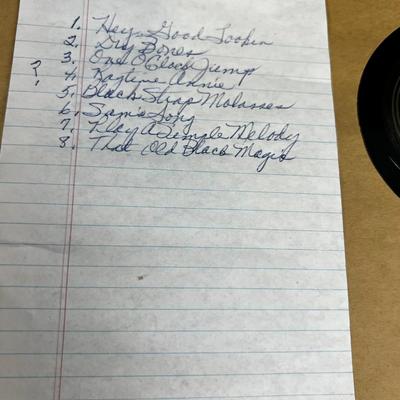 1. Hey Good Lookin
2. Dry Bones
3. One O'Clock Jump
? 4. Ragtime Annie
5. Black Strap Molasses
6. Sam's Song
7. Play A Simple Melody
8. That Old Black Magic